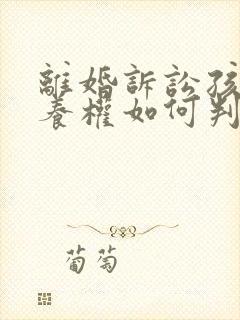 離婚訴訟孩
養權如何判
葡萄